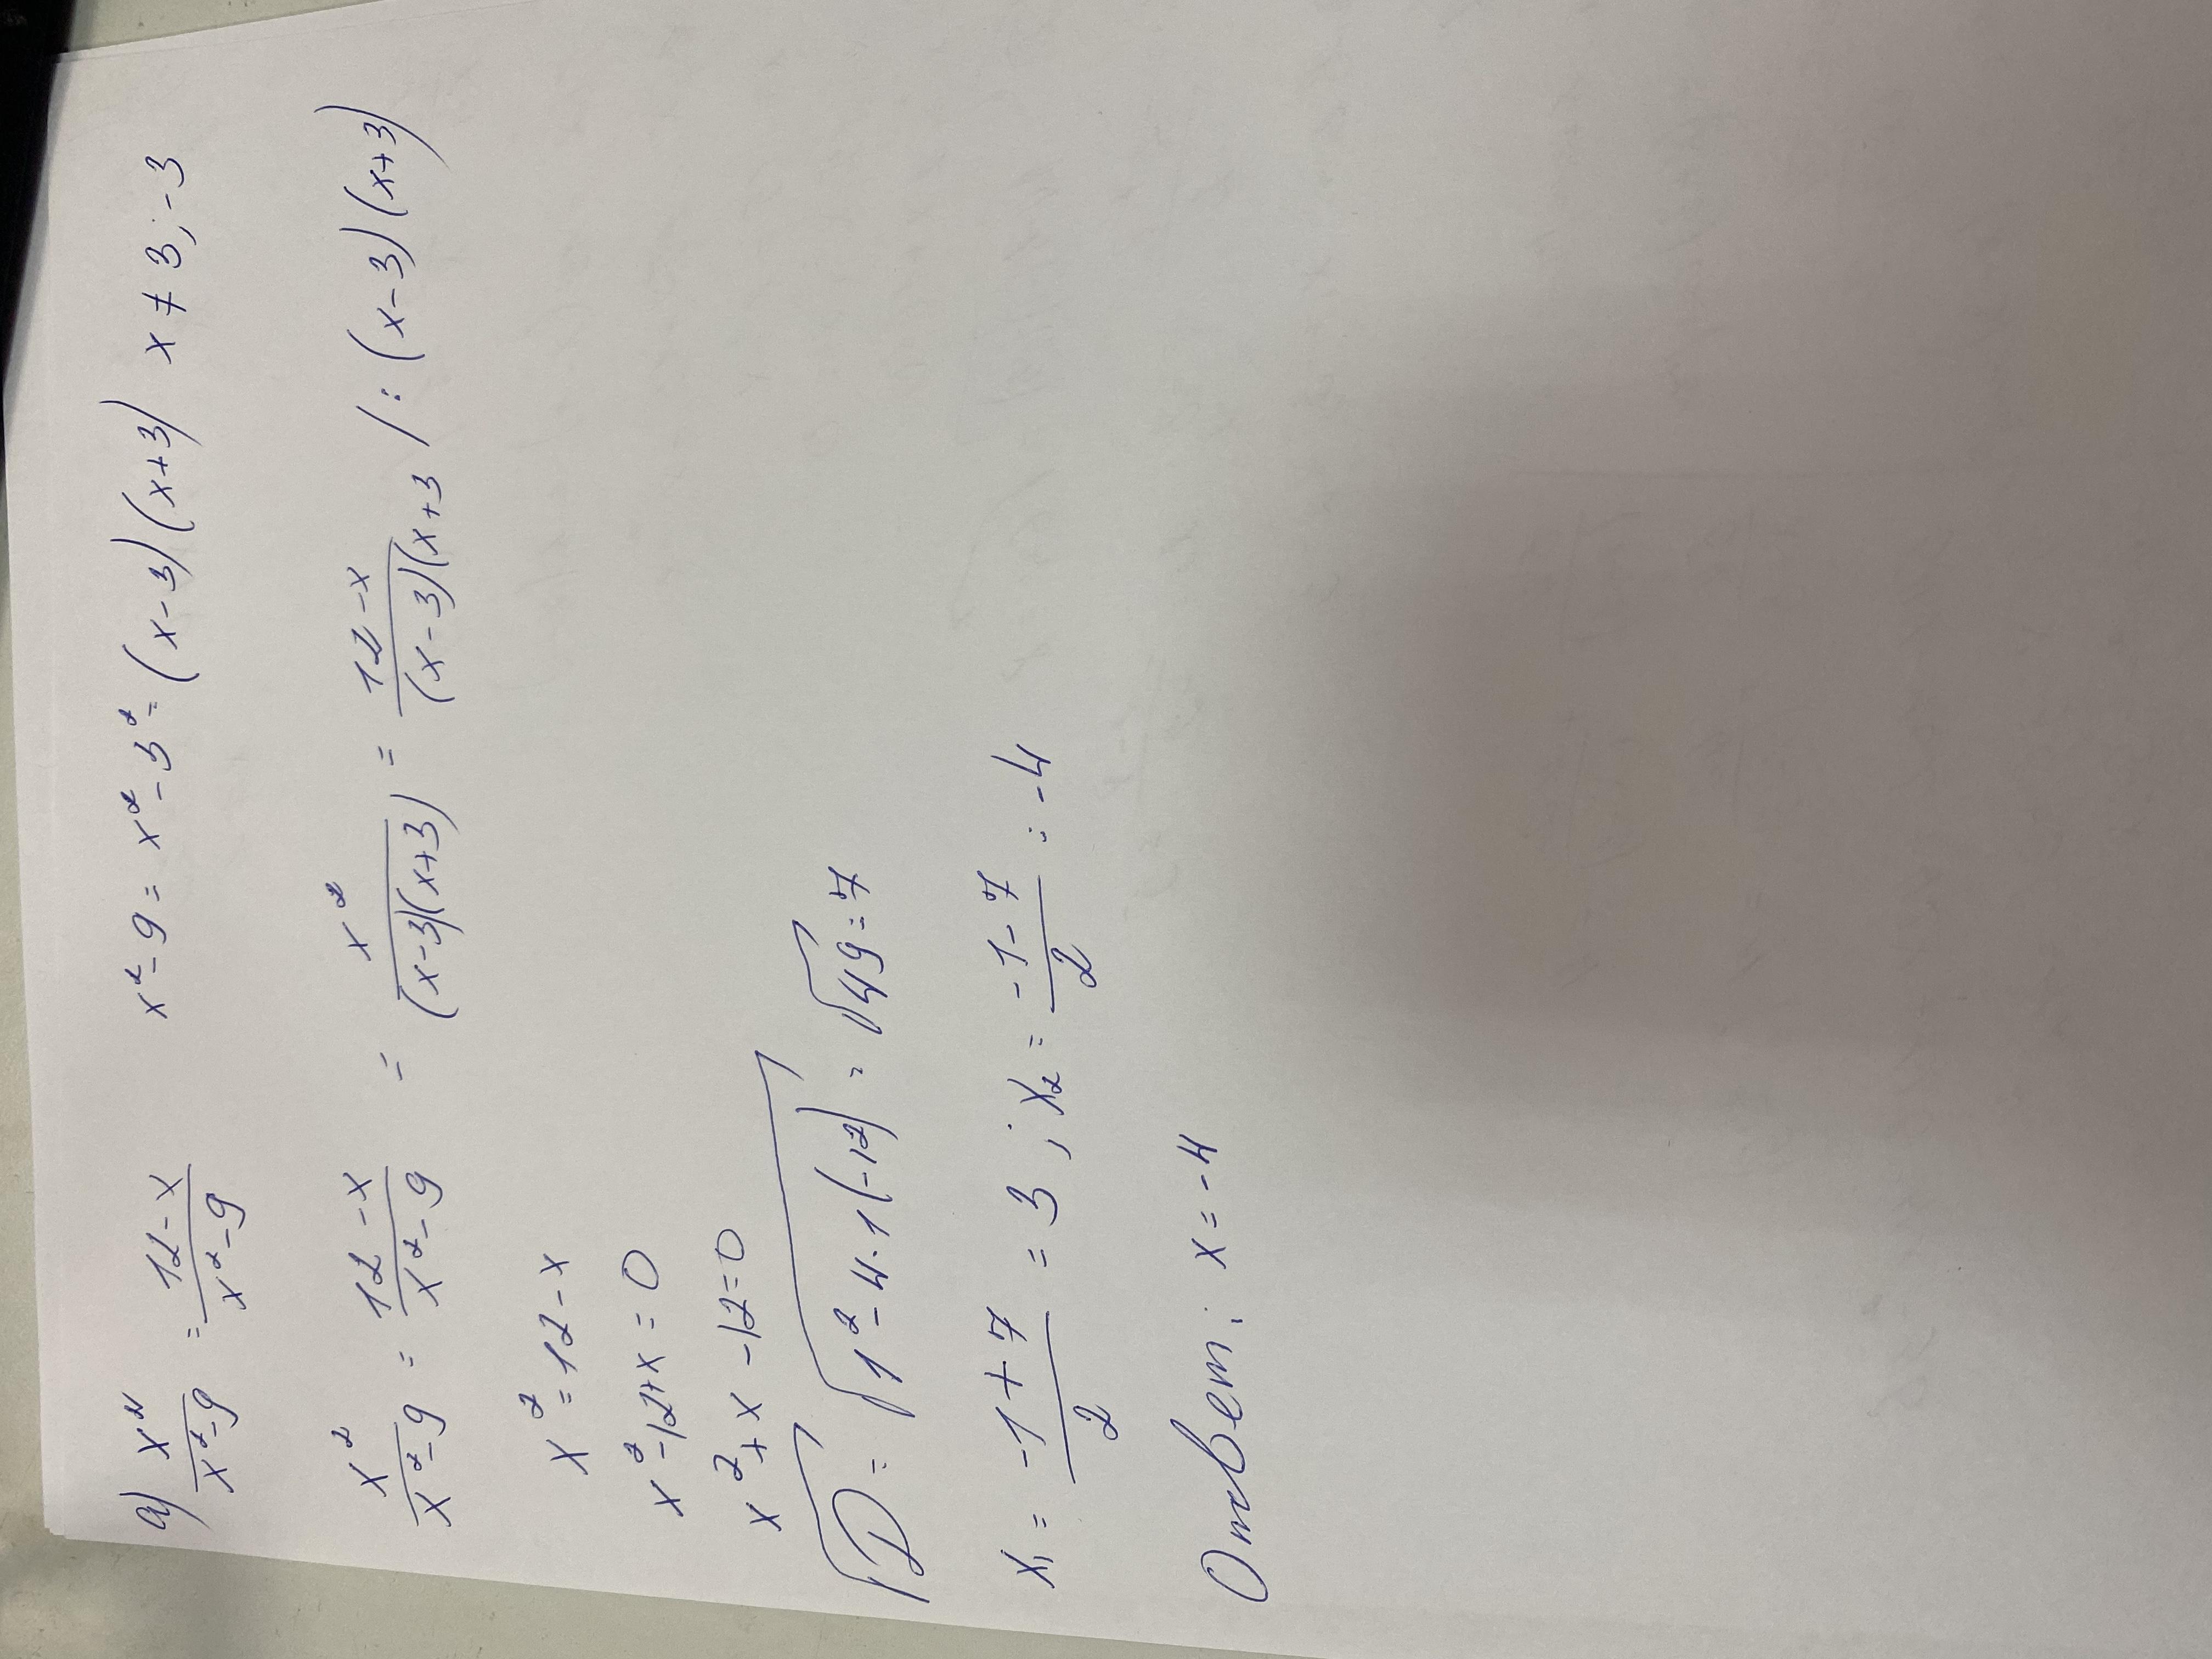 а) x²/(x²-9) = (12-x)/(x²-9) x²-9 = x²-3² = (x-3)(x+3) x ≠ 3; -3
x²/(x²-9) = (12-x)/(x²-9) = x²/((x-3)(x+3)) = (12-x)/((x-3)(x+3 /: (x-3)(x+3)
x² = 12-x
x²-12+x = 0
x²+x-12=0
√D = √(1²-4·1(-12)) = √49 = 7
x₁ = (-1+7)/2 = 3; x₂ = (-1-7)/2 = -4
Ответ: x = -4